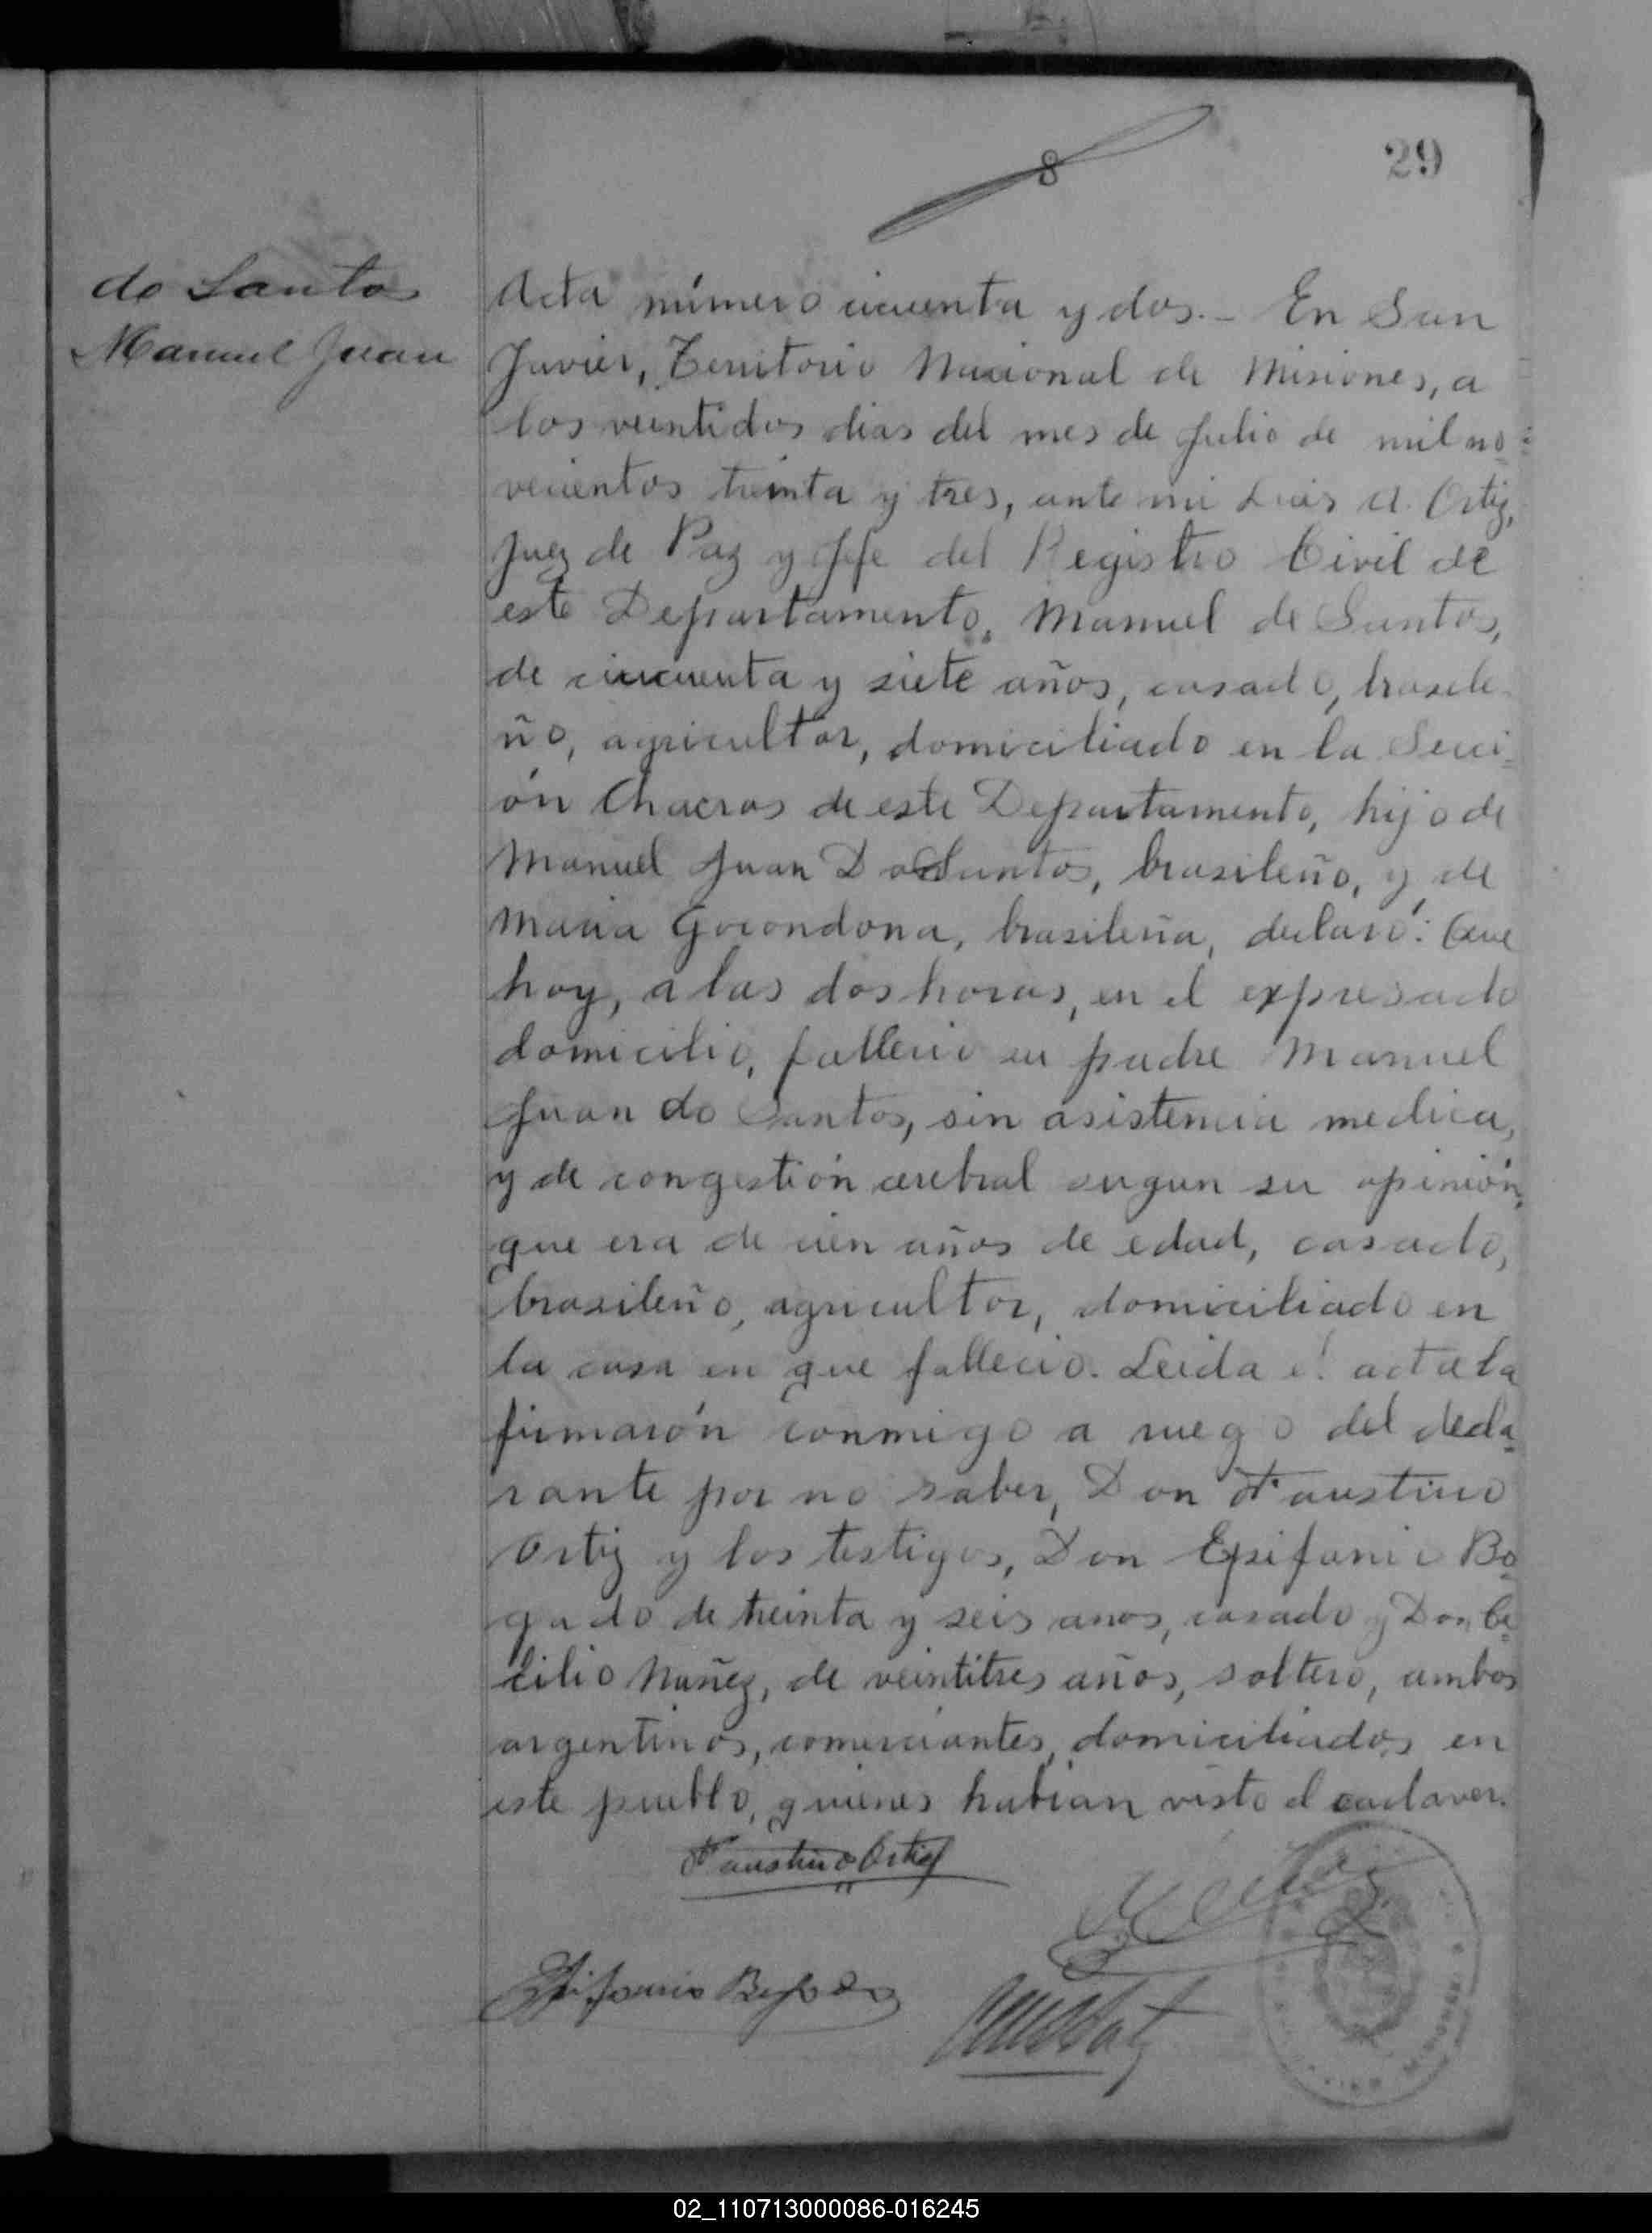 8
29
do Santos
Manuel Juan
Acta número cicuenta y dos.- En San
Javier, Territorio Nacional de Misiones, a
los veintidos dias del mes de Julio de mil no-
vecientos treinta y tres, ante mi Luis A. Ortiz,
Juez de Paz y Jefe del Registro Civil de
este Departamento, Manuel de Santos,
de cincuenta y siete años, casado, brasile-
ño, agricultor, domiciliado en la Secci-
ón Chacras de este Departamento, hijo de
Manuel Juan Do Santos, brasileño, y de
Maria Gocondona, brasileña, declaró: Que
hoy, a las dos horas, en el expresado
domicilio, fallecio su padre Manuel
Juan do Santos, sin asistencia medica,
y de congestión cerebral segun su opinión,
que era de cien años de edad, casado,
brasileño, agricultor, domiciliado en
la casa en que fallecio. Leida el acta la
firmarón conmigo a ruego del decla-
rante por no saber, Don Faustino
Ortiz y los testigos, Don Epifanio Bo-
gado de treinta y seis anos, casado y Don Ce-
cilio Nuñez, de veintitres años, soltero, ambos
argentinos, comerciantes, domiciliados en
este pueblo, quienes habian visto el cadaver.
Faustino Ortiz
Epifanio Bogado
02_110713000086-016245